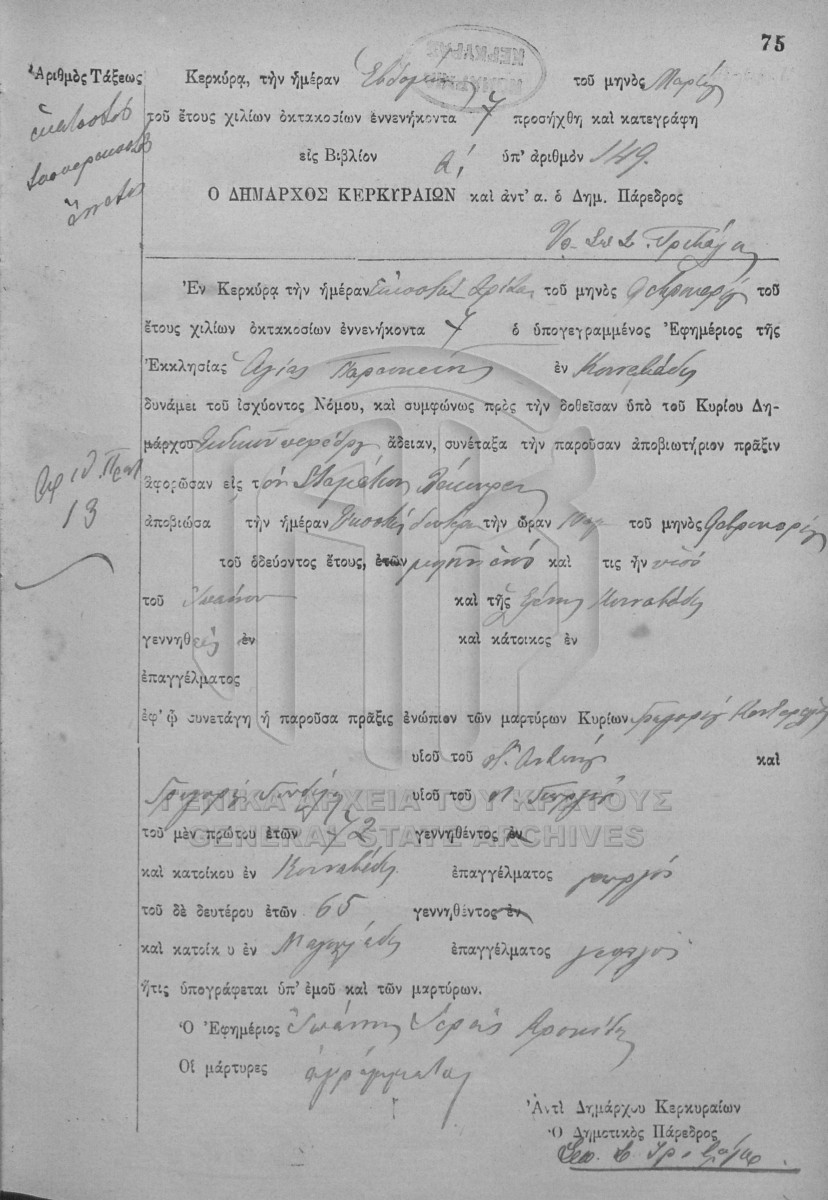 75
Ἀριθμὸς Τάξεως
ἑκατοστὸς
Κερκύρᾳ, τὴν ἡμέραν Ἑβδόμην τοῦ μηνὸς Μαρτίου
τοῦ ἔτους χιλίων ὀκτακοσίων ἐννενήκοντα 7 προσήχθη καὶ κατεγράφη
εἰς Βιβλίον Α' ὑπ' ἀριθμὸν 149.
Ο ΔΗΜΑΡΧΟΣ ΚΕΡΚΥΡΑΙΩΝ καὶ ἀντ' α. ὁ Δημ. Πάρεδρος
Ἐν Κερκύρᾳ τὴν ἡμέραν εἰκοστὴν τρίτην τοῦ μηνὸς Φεβρουαρίου τοῦ
ἔτους χιλίων ὀκτακοσίων ἐννενήκοντα 7 ὁ ὑπογεγραμμένος Ἐφημέριος τῆς
Ἐκκλησίας Ἁγίας Παρασκευῆς ἐν
δυνάμει τοῦ ἰσχύοντος Νόμου, καὶ συμφώνως πρὸς τὴν δοθεῖσαν ὑπὸ τοῦ Κυρίου Δη-
μάρχου ἄδειαν, συνέταξα τὴν παροῦσαν ἀποβιωτήριον πρᾶξιν
Ἀριθ. Πρωτ
13
ἀφορῶσαν εἰς τὸν Σταμάτιον
ἀποβιώσα τὴν ἡμέραν Εἰκοστὴν δευτέραν τὴν ὥραν τοῦ μηνὸς Φεβρουαρίου
τοῦ ὁδεύοντος ἔτους, ἐτῶν καὶ τις ἦν υἱὸς
τοῦ Ἰωάννου καὶ τῆς
γεννηθεὶς ἐν καὶ κάτοικος ἐν
ἐπαγγέλματος
ἐφ' ᾧ συνετάγη ἡ παροῦσα πρᾶξις ἐνώπιον τῶν μαρτύρων Κυρίων
υἱοῦ τοῦ π. Ἀντώνη καὶ
Γρηγορίου υἱοῦ τοῦ π. Γεωργίου
ΓΕΝΙΚΑ ΑΡΧΕΙΑ ΤΟΥ ΚΡΑΤΟΥΣ
GENERAL STATE ARCHIVES
τοῦ μὲν πρώτου ἐτῶν 72 γεννηθέντος ἐν
καὶ κατοίκου ἐν ἐπαγγέλματος γεωργὸς
τοῦ δὲ δευτέρου ἐτῶν 65 γεννηθέντος ἐν
καὶ κατοίκ υ ἐν ἐπαγγέλματος γεωργὸς
ἥτις ὑπογράφεται ὑπ' ἐμοῦ καὶ τῶν μαρτύρων.
Ὁ Ἐφημέριος Ἰωάννης Ἱερεὺς
Οἱ μάρτυρες ἀγράμματοι
Ἀντὶ Δημάρχου Κερκυραίων
Ὁ Δημοτικὸς Πάρεδρος